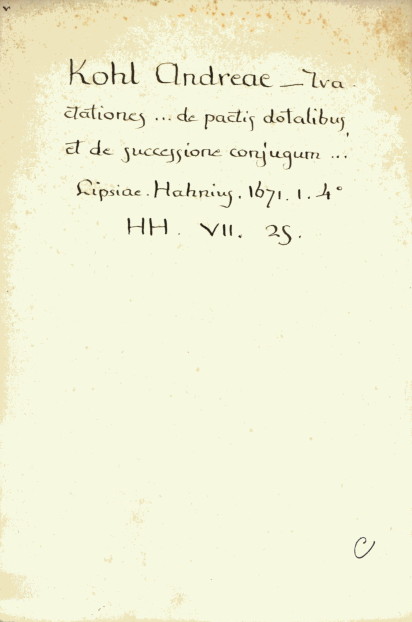 Kohl Andreae — Tra
ctationes ... de pactis dotalibus,
et de successione conjugum ...
Lipsiae. Hahnius. 1671. 1. 4°
HH. VII. 25.
C